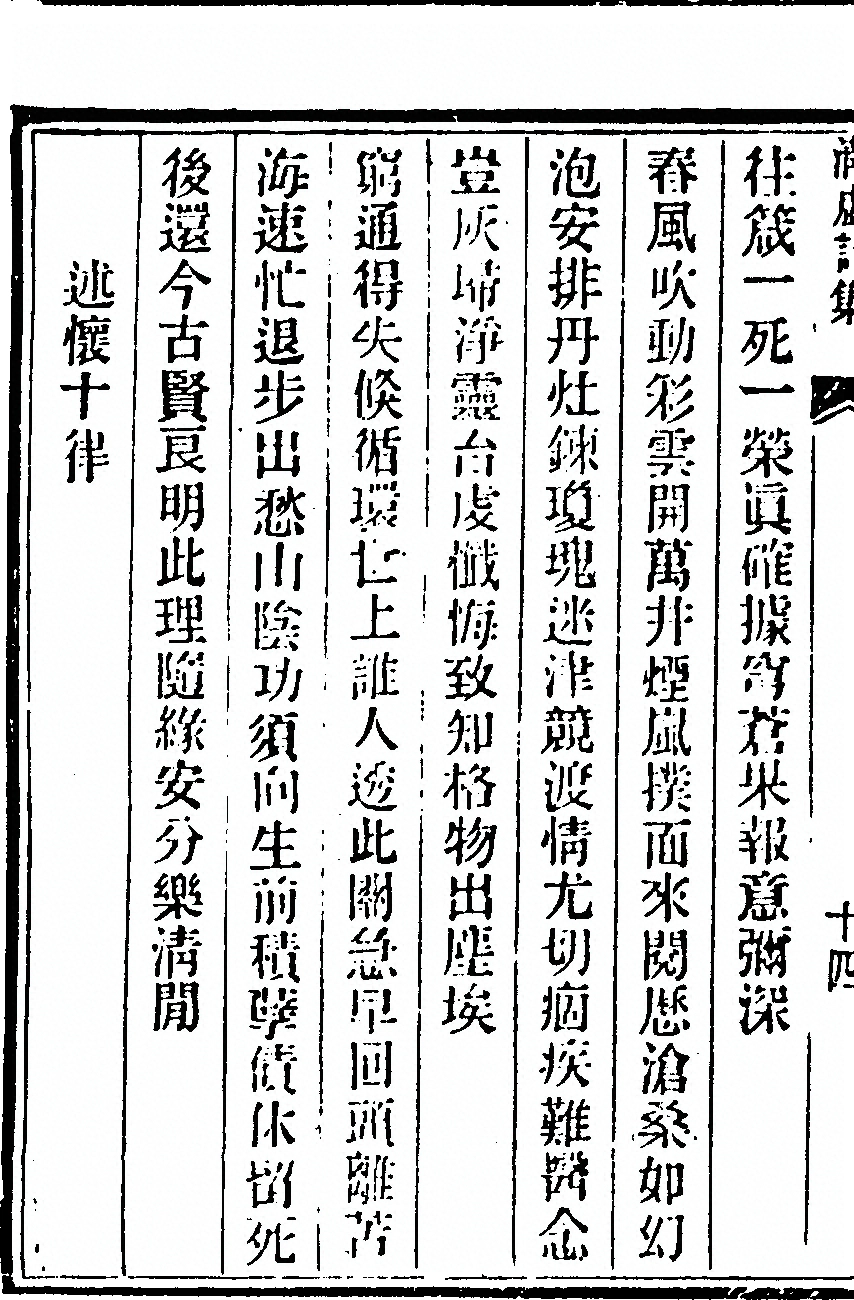 往箴一死一榮眞確據穹蒼果報意彌深
春風吹動彩雲開萬井煙嵐撲面來閱歷滄桑如幻
泡安排丹灶鍊瓊瑰迷津競渡情尤切痼疾難醫念
豈灰埽淨靈台虔懺悔致知格物出塵埃
窮通得失倏循環世上誰人透此關急早回頭離苦
海速忙退步出愁山陰功須向生前積孽債休留死
後還今古賢良明此理隨緣安分樂淸閒
述懷十律
十四